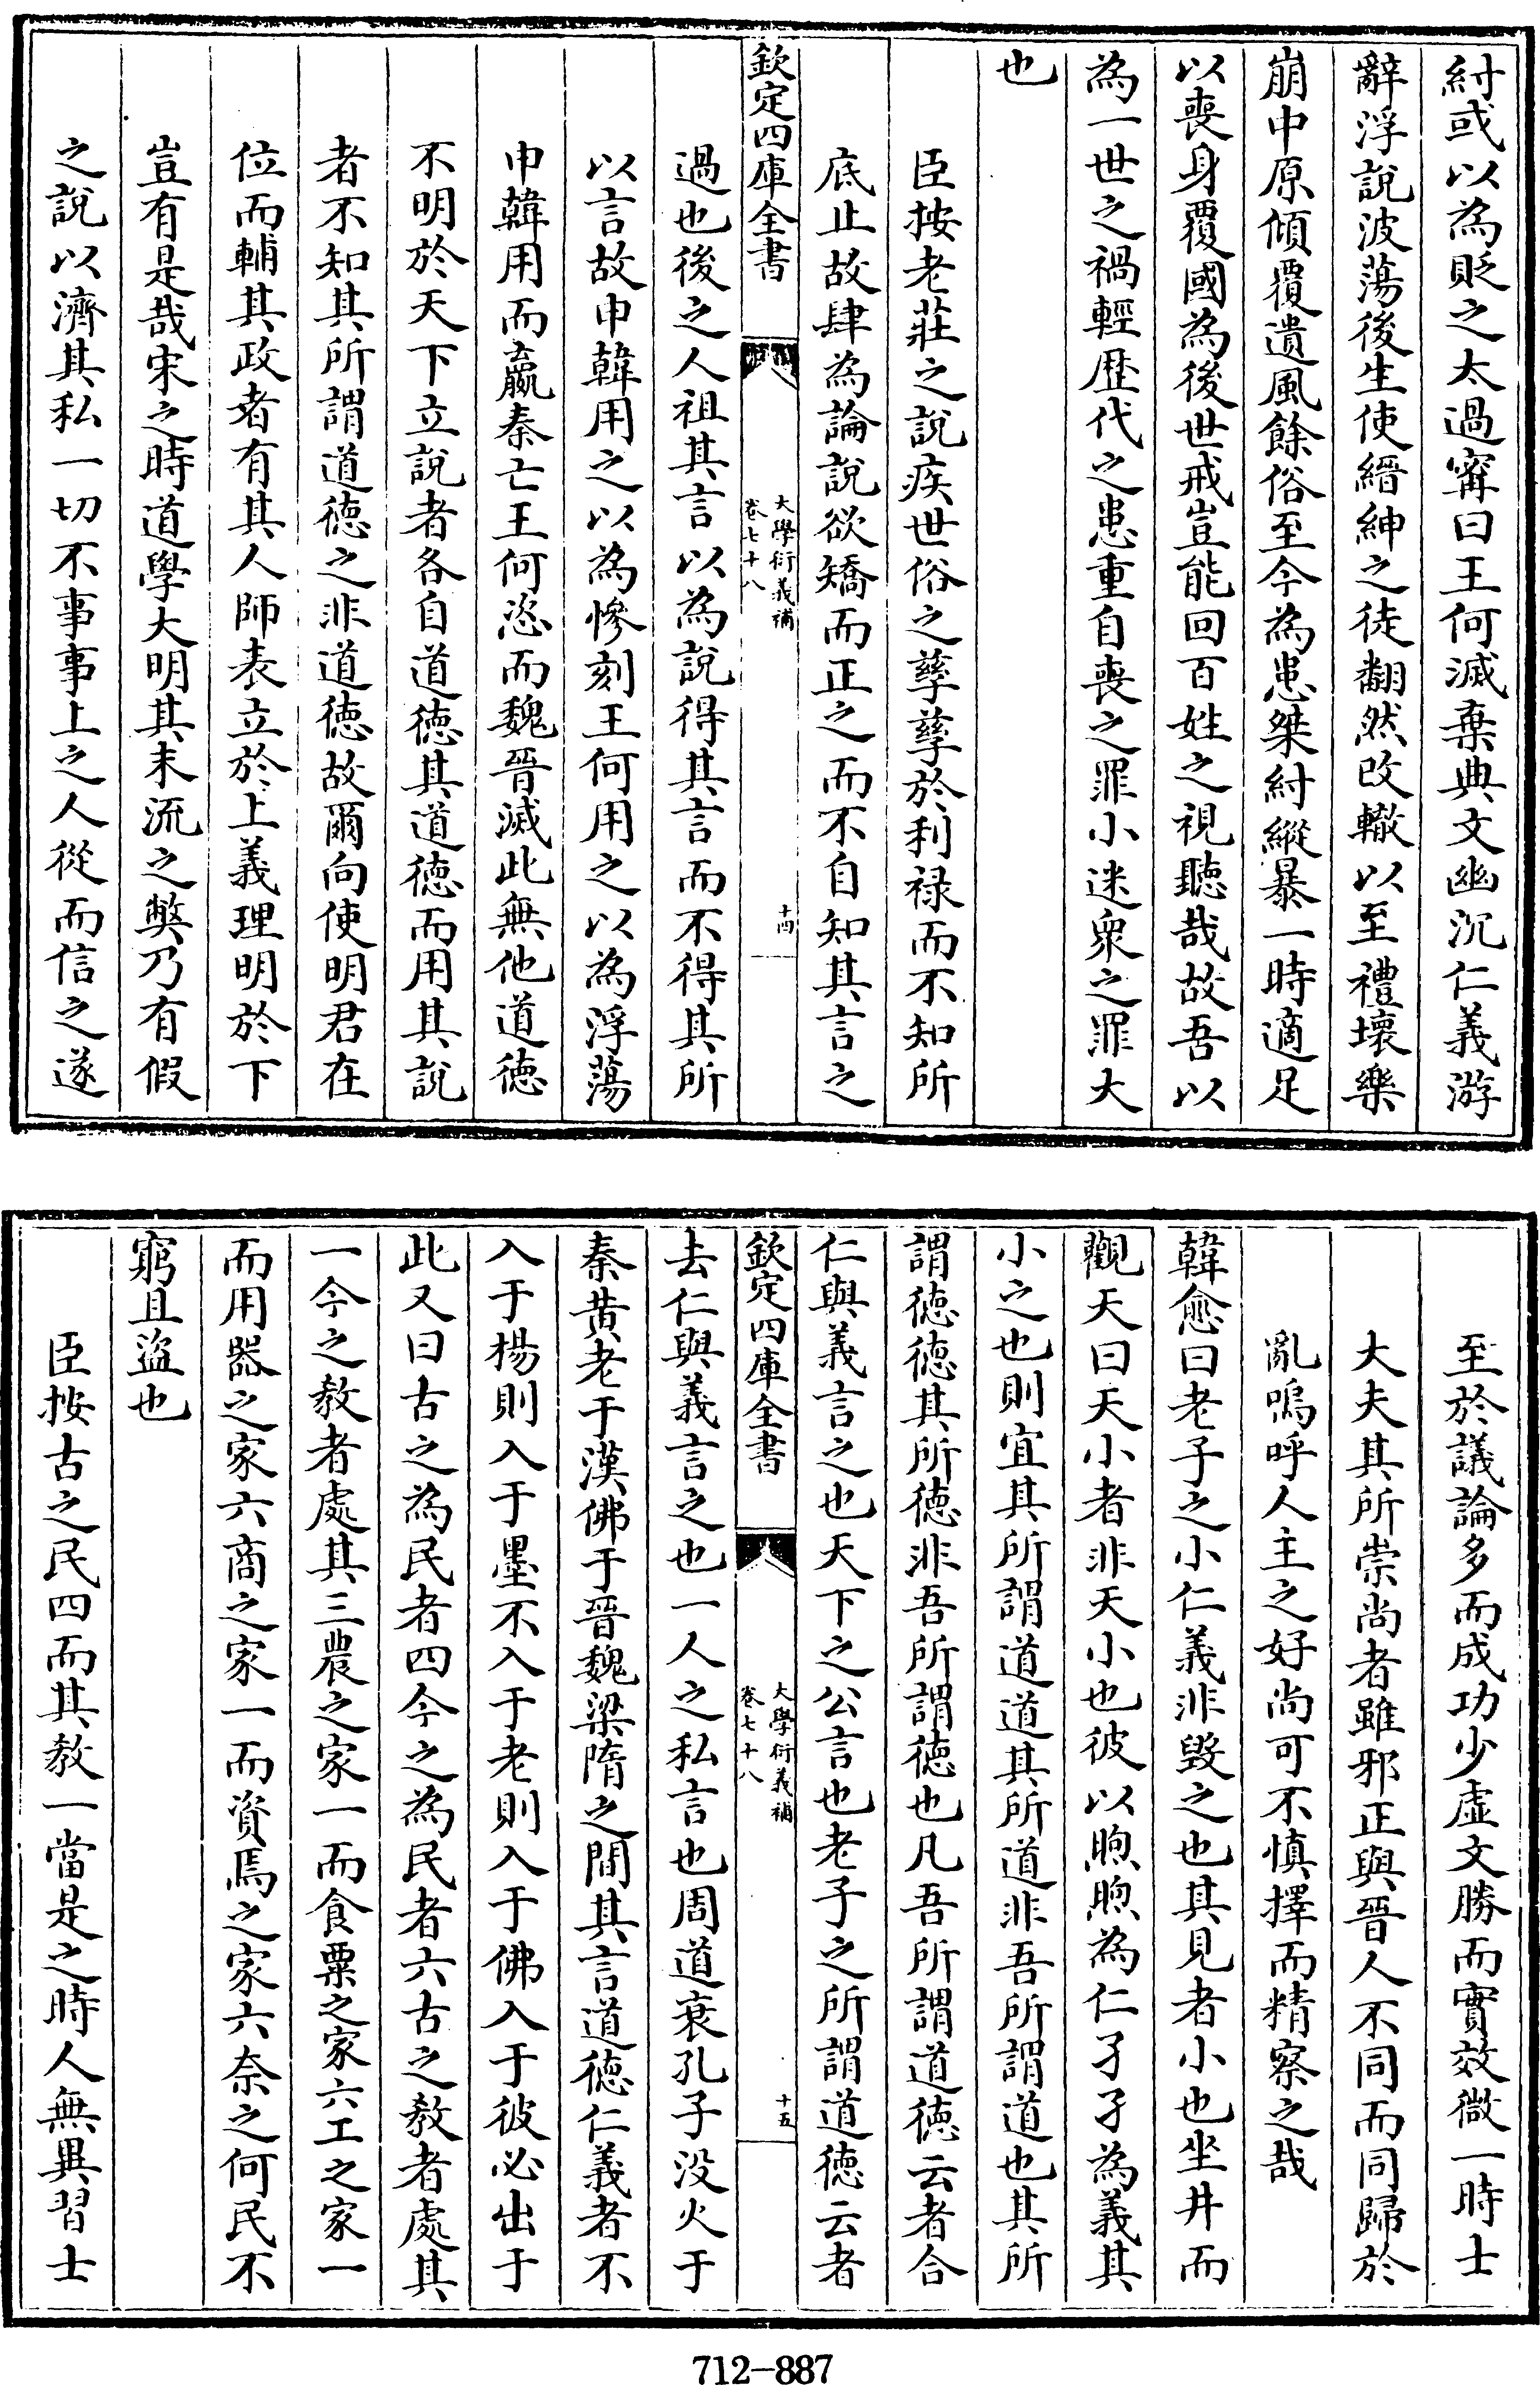 紂或以為貶之太過寗曰王何滅棄典文幽沉仁義游
辭浮說波蕩後生使縉紳之徒翻然改轍以至禮壞樂
崩中原傾覆遺風餘俗至今為患桀紂縱暴一時適足
以喪身覆國為後世戒豈能回百姓之視聽哉故吾以
為一世之禍輕歴代之患重自喪之罪小迷衆之罪大
也
臣按老莊之說疾世俗之孳孳於利禄而不知所
底止故肆為論說欲矯而正之而不自知其言之
欽定四庫全書
大學衍義補
卷七十八
十四
過也後之人祖其言以為說得其言而不得其所
以言故申韓用之以為慘刻王何用之以為浮蕩
申韓用而嬴秦亡王何恣而魏晉滅此無他道徳
不明於天下立說者各自道徳其道徳而用其說
者不知其所謂道徳之非道徳故爾向使明君在
位而輔其政者有其人師表立於上義理明於下
豈有是哉宋之時道學大明其末流之弊乃有假
之說以濟其私一切不事事上之人從而信之遂
至於議論多而成功少虛文勝而實效微一時士
大夫其所崇尚者雖邪正與晉人不同而同歸於
亂嗚呼人主之好尚可不慎擇而精察之哉
韓愈曰老子之小仁義非毀之也其見者小也坐井而
觀天曰天小者非天小也彼以煦煦為仁孑孑為義其
小之也則宜其所謂道道其所道非吾所謂道也其所
謂徳徳其所徳非吾所謂徳也凡吾所謂道徳云者合
仁與義言之也天下之公言也老子之所謂道徳云者
欽定四庫全書
大學衍義補
卷七十八
十五
去仁與義言之也一人之私言也周道衰孔子没火于
秦黄老于漢佛于晉魏梁隋之間其言道徳仁義者不
入于楊則入于墨不入于老則入于佛入于彼必出于
此又曰古之為民者四今之為民者六古之教者處其
一今之教者處其三農之家一而食粟之家六工之家一
而用器之家六商之家一而資焉之家六奈之何民不
窮且盜也
臣按古之民四而其教一當是之時人無異習士
712-887